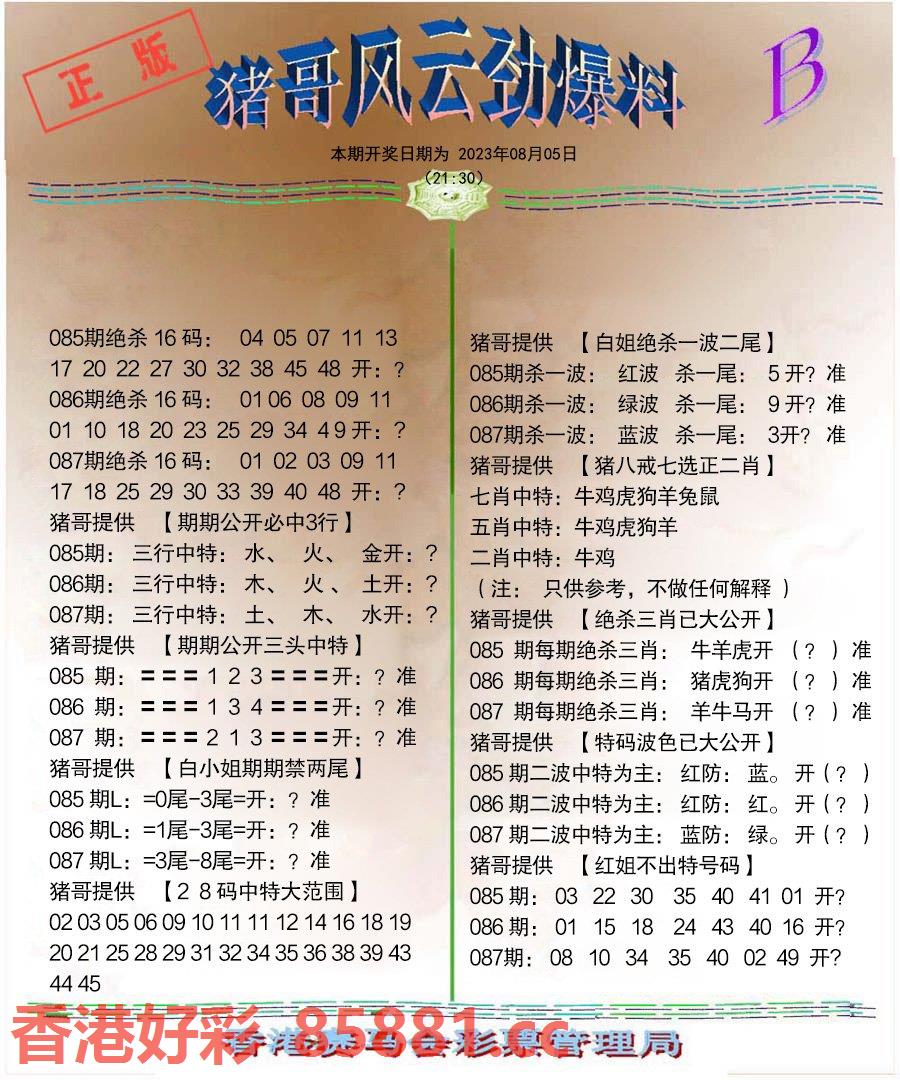 正版
猪哥风云劲爆料
B
本期开奖日期为 2023年08月05日
(21:30)
085期绝杀 16 码： 04 05 07 11 13
17 20 22 27 30 32 38 45 48 开：?
086期绝杀 16 码： 01 06 08 09 11
01 10 18 20 23 25 29 34 4 9 开：?
087期绝杀 16 码： 01 02 03 09 11
17 18 25 29 30 33 39 40 48 开：?
猪哥提供 【期期公开必中3行】
085期： 三行中特： 水、 火、 金开：?
086期： 三行中特： 木、 火 、 土开：?
087期： 三行中特： 土、 木、 水开：?
猪哥提供 【期期公开三头中特】
085 期：=== 1 2 3 ===开：? 准
086 期：=== 1 3 4 ===开：? 准
087 期：=== 2 1 3 ===开：? 准
猪哥提供 【白小姐期期禁两尾】
085 期L：=0尾-3尾=开：? 准
086 期L：=1尾-3尾=开：? 准
087 期L：=3尾-8尾=开：? 准
猪哥提供 【２８码中特大范围】
02 03 05 06 09 10 11 11 12 14 16 18 19
20 21 25 28 29 31 32 34 35 36 38 39 43
44 45
猪哥提供 【白姐绝杀一波二尾】
085期杀一波： 红波 杀一尾： 5 开? 准
086期杀一波： 绿波 杀一尾： 9 开? 准
087期杀一波： 蓝波 杀一尾： 3开? 准
猪哥提供 【猪八戒七选正二肖】
七肖中特：牛鸡虎狗羊兔鼠
五肖中特：牛鸡虎狗羊
二肖中特：牛鸡
（注： 只供参考，不做任何解释 ）
猪哥提供 【绝杀三肖已大公开】
085 期每期绝杀三肖： 牛羊虎开 （? ）准
086 期每期绝杀三肖： 猪虎狗开 （? ）准
087 期每期绝杀三肖： 羊牛马开 （? ）准
猪哥提供 【特码波色已大公开】
085 期二波中特为主： 红防： 蓝。 开（? ）
086 期二波中特为主： 红防： 红。 开（? ）
087 期二波中特为主： 蓝防： 绿。 开（? ）
猪哥提供 【红姐不出特号码】
085 期： 03 22 30 35 40 41 01 开?
086 期： 01 15 18 24 43 40 16 开?
087期： 08 10 34 35 40 02 49 开?
香港好彩 85881.cc
香港赛马会彩票管理局